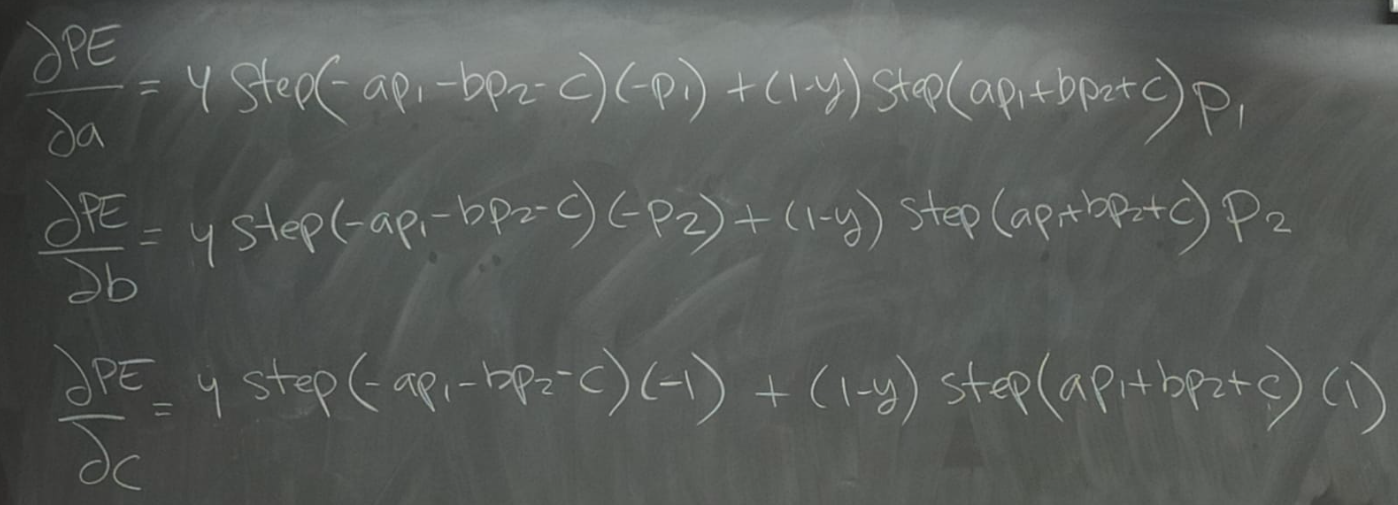 ∂PE/∂a = y step(-ap₁-bp₂-c)(-p₁) + (1-y) step(ap₁+bp₂+c) p₁
∂PE/∂b = y step(-ap₁-bp₂-c)(-p₂) + (1-y) step(ap₁+bp₂+c) p₂
∂PE/∂c = y step(-ap₁-bp₂-c)(-1) + (1-y) step(ap₁+bp₂+c)(1)